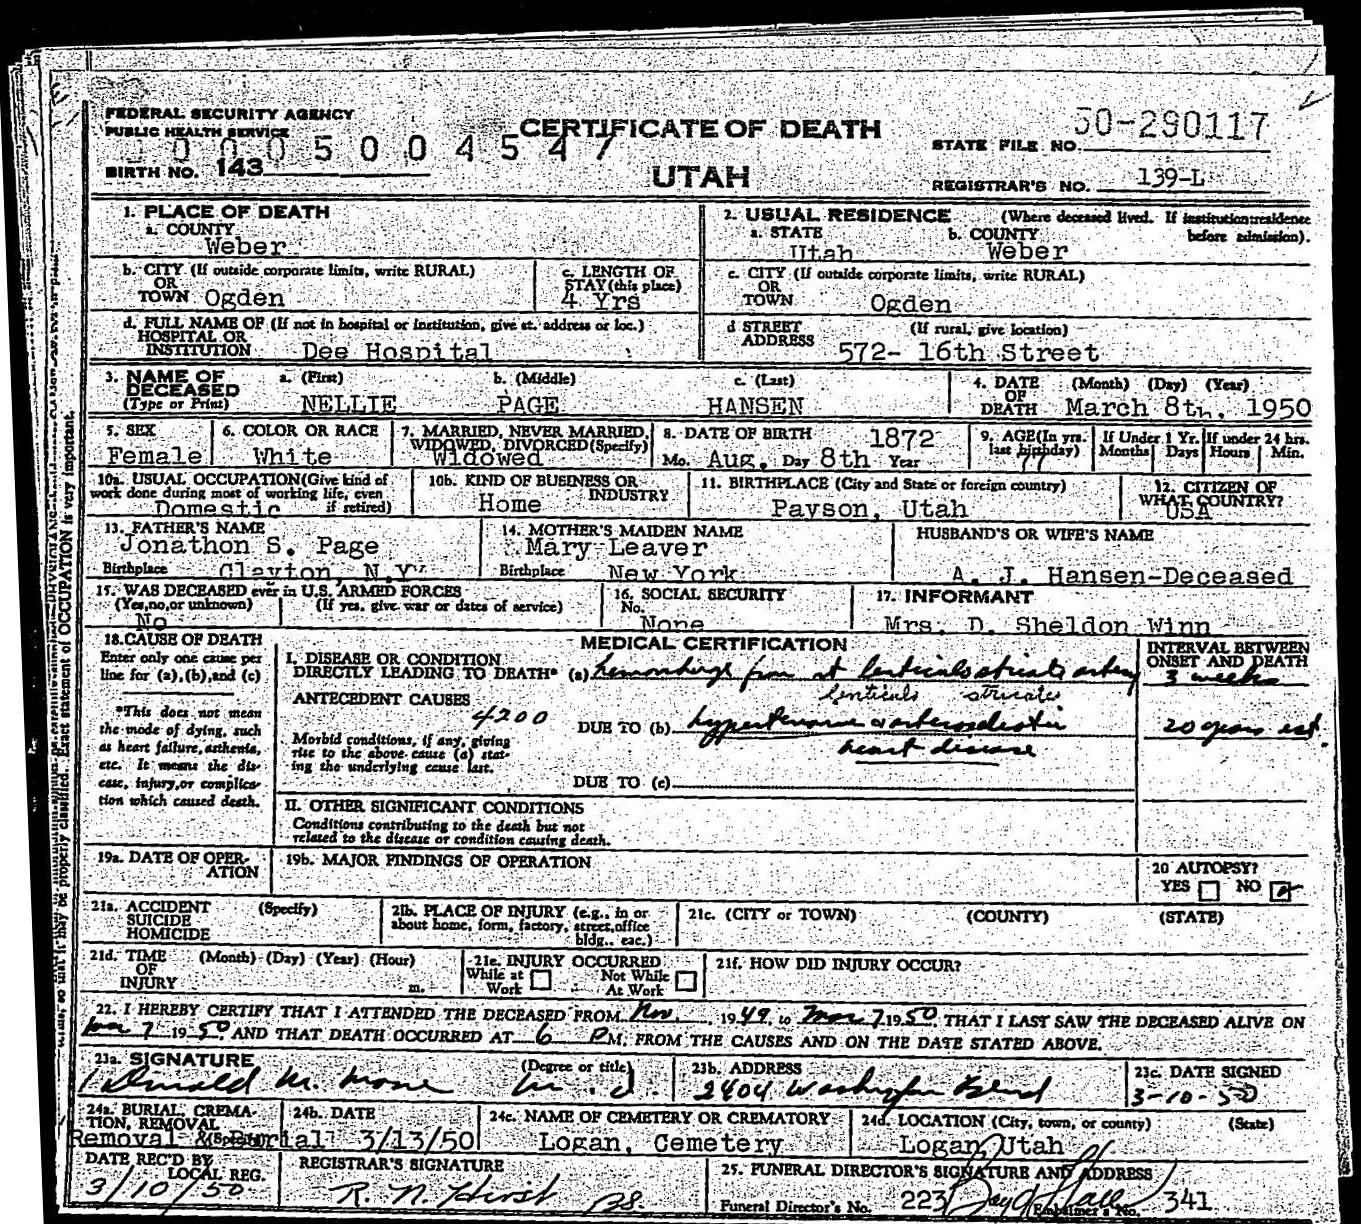 FEDERAL SECURITY AGENCY
PUBLIC HEALTH SERVICE
CERTIFICATE OF DEATH
UTAH
50-290117
STATE FILE NO.
0005004547
BIRTH NO. 143
REGISTRAR'S NO. 139-L
1. PLACE OF DEATH
a. COUNTY
Weber
2. USUAL RESIDENCE (Where deceased lived. If institution: residence before admission).
a. STATE b. COUNTY
Utah Weber
b. CITY (If outside corporate limits, write RURAL)
OR
TOWN Ogden
c. LENGTH OF
STAY (this place)
4 Yrs
c. CITY (If outside corporate limits, write RURAL)
OR
TOWN Ogden
d. FULL NAME OF (If not in hospital or institution, give st. address or loc.)
HOSPITAL OR
INSTITUTION Dee Hospital
d STREET (If rural, give location)
ADDRESS
572- 16th Street
3. NAME OF DECEASED
(Type or Print)
a. (First) b. (Middle) c. (Last)
NELLIE PAGE HANSEN
4. DATE OF DEATH (Month) (Day) (Year)
March 8th, 1950
5. SEX
Female
6. COLOR OR RACE
White
7. MARRIED, NEVER MARRIED,
WIDOWED, DIVORCED (Specify)
Widowed
8. DATE OF BIRTH 1872
Mo. Aug. Day 8th Year
9. AGE (In yrs. last birthday)
77
If Under 1 Yr.
Months Days
If under 24 hrs.
Hours Min.
10a. USUAL OCCUPATION (Give kind of
work done during most of working life, even
if retired)
Domestic
10b. KIND OF BUSINESS OR
INDUSTRY
Home
11. BIRTHPLACE (City and State or foreign country)
Payson, Utah
12. CITIZEN OF
WHAT COUNTRY?
USA
13. FATHER'S NAME
Jonathon S. Page
Birthplace Clayton, N.Y.
14. MOTHER'S MAIDEN NAME
Mary Leaver
Birthplace New York
HUSBAND'S OR WIFE'S NAME
A. J. Hansen-Deceased
15. WAS DECEASED ever in U.S. ARMED FORCES
(Yes, no, or unknown) (If yes, give war or dates of service)
No
16. SOCIAL SECURITY
No.
None
17. INFORMANT
Mrs. D. Sheldon Winn
18. CAUSE OF DEATH
Enter only one cause per
line for (a), (b), and (c)
*This does not mean
the mode of dying, such
as heart failure, asthenia,
etc. It means the dis-
ease, injury, or complica-
tion which caused death.
MEDICAL CERTIFICATION
INTERVAL BETWEEN
ONSET AND DEATH
I. DISEASE OR CONDITION
DIRECTLY LEADING TO DEATH* (a) hemorrhage from rt lenticulostriate artery
3 weeks
lenticulo striate
ANTECEDENT CAUSES
4200
Morbid conditions, if any, giving
rise to the above cause (a) stat-
ing the underlying cause last.
DUE TO (b) hypertensive & arteriosclerotic
heart disease
20 years est.
DUE TO (c)
II. OTHER SIGNIFICANT CONDITIONS
Conditions contributing to the death but not
related to the disease or condition causing death.
19a. DATE OF OPER-
ATION
19b. MAJOR FINDINGS OF OPERATION
20 AUTOPSY?
YES NO
21a. ACCIDENT (Specify)
SUICIDE
HOMICIDE
21b. PLACE OF INJURY (e.g., in or
about home, form, factory, street, office
bldg., eac.)
21c. (CITY or TOWN) (COUNTY) (STATE)
21d. TIME (Month) (Day) (Year) (Hour)
OF
INJURY m.
21e. INJURY OCCURRED
While at Work Not While At Work
21f. HOW DID INJURY OCCUR?
22. I HEREBY CERTIFY THAT I ATTENDED THE DECEASED FROM Nov. 1949 to Mar 7 1950, THAT I LAST SAW THE DECEASED ALIVE ON
Mar 7 1950 AND THAT DEATH OCCURRED AT 6 P M. FROM THE CAUSES AND ON THE DATE STATED ABOVE.
23a. SIGNATURE (Degree or title)
Donald M. Moore M.D
23b. ADDRESS
2404 Washington Blvd
23c. DATE SIGNED
3-10-50
24a. BURIAL, CREMA-
TION, REMOVAL
(Specify)
Removal & Burial
24b. DATE
3/13/50
24c. NAME OF CEMETERY OR CREMATORY
Logan, Cemetery
24d. LOCATION (City, town, or county) (State)
Logan, Utah
DATE REC'D BY
LOCAL REG.
3/10/50
REGISTRAR'S SIGNATURE
R. N. Hirst
25. FUNERAL DIRECTOR'S SIGNATURE AND ADDRESS
Funeral Director's No. 223 Embalmer's No. 341
so that it may be properly classified. Exact statement of OCCUPATION is very important.